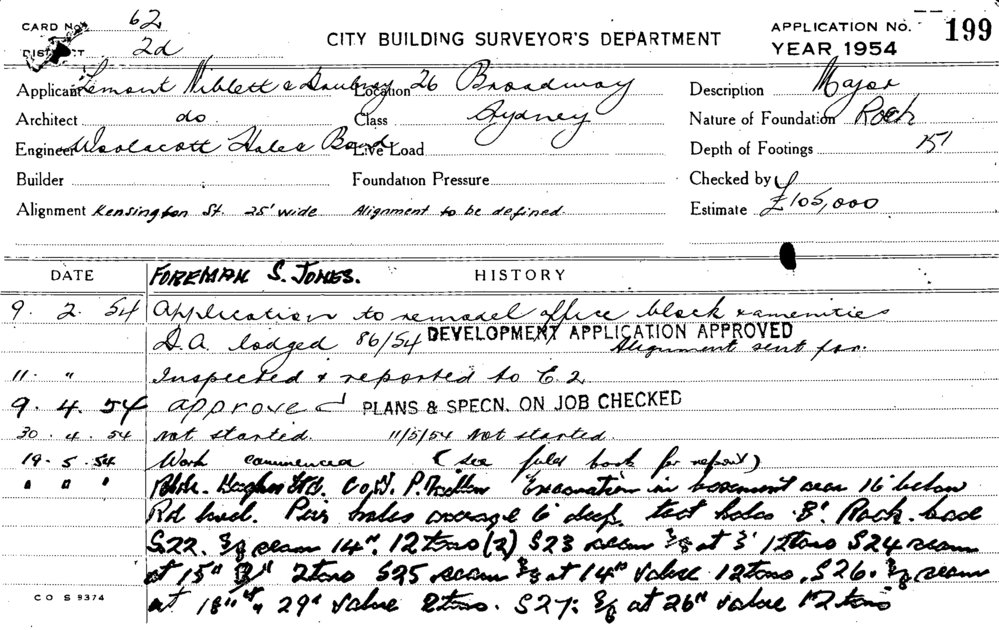 CARD No. 62
DISTRICT 2d
CITY BUILDING SURVEYOR'S DEPARTMENT
APPLICATION No. 199
YEAR 1954
Applicant Lemont Niblett & Location 26 Broadway
Description Major
Architect do Class Sydney
Nature of Foundation Rock
Engineer Woolacott Hales Bond Live Load
Depth of Footings 15'
Builder Foundation Pressure
Checked by
Alignment Kensington St. 25' wide Alignment to be defined.
Estimate £105,000
DATE FOREMAN S. JONES. HISTORY
9. 2. 54 Application to remodel office block & amenities
D.A. lodged 86/54 DEVELOPMENT APPLICATION APPROVED
Alignment sent for.
11. " Inspected & reported to E.2.
9. 4. 54 approved PLANS & SPECN. ON JOB CHECKED
30. 4. 54 Not started. 11/5/54 Not started.
19. 5. 54 Work commenced (see field book for report)
" " " Excavation in basement over 16' below
Rd level. Pier holes average 6' deep, test holes 8'. Rock. bad
S22. 3/8 seam 14". 12 tons (2) S23 seam 3/8 at 3' 12 tons S24 seam
at 15" 2" 2 tons S25 seam 3/8 at 14" value 12 tons, S26. 3/8 seam
at 18" 29" value 2 tons. S27: 3/8 at 26" value 12 tons
C O S 9374